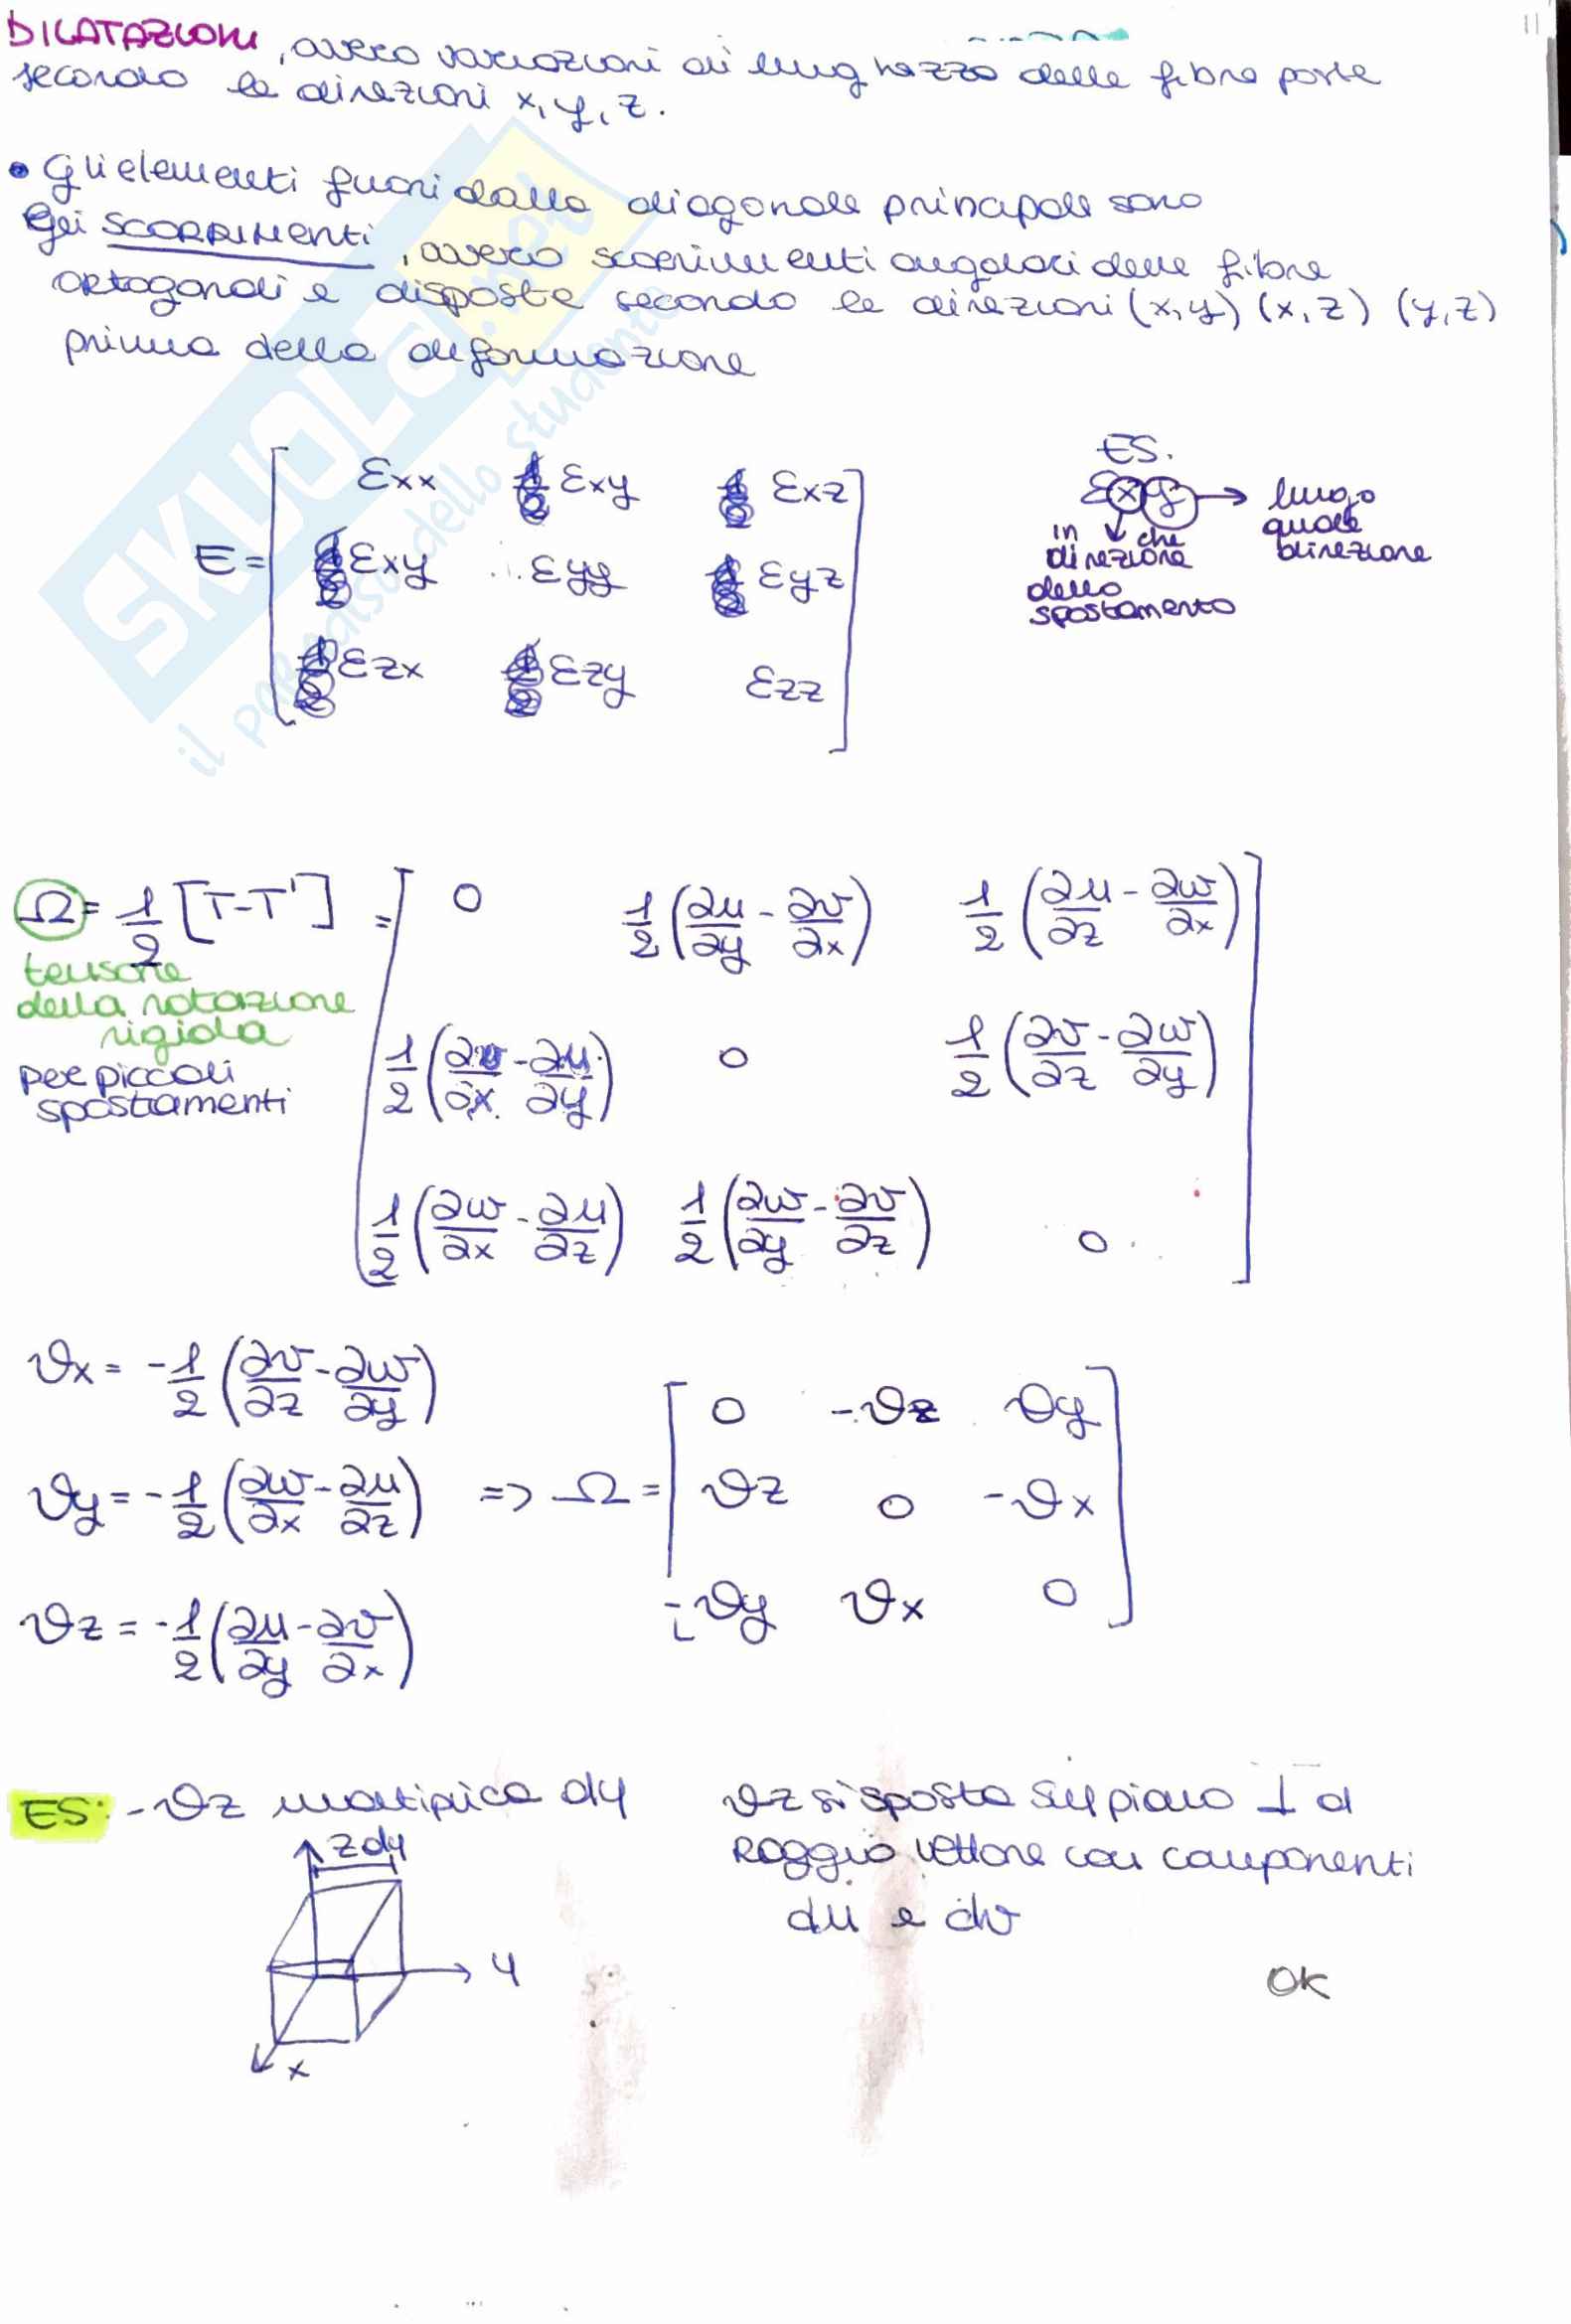 11
DILATAZIONI, ovvero variazioni di lunghezza delle fibre poste
secondo le direzioni x, y, z.
• Gli elementi fuori dalla diagonale principale sono
gli SCORRIMENTI, ovvero scorrimenti angolari delle fibre
ortogonali e disposte secondo le direzioni (x,y) (x,z) (y,z)
prima della deformazione
SKUOLA.net
il paradiso dello studente
E = [ εxx εxy εxz
εxy εyy εyz
εzx εzy εzz ]
ES.
εxy → lungo quale direzione
↓ in che direzione dello spostamento
Ω = 1/2 [T-T'] = [ 0 1/2 (∂u/∂y - ∂v/∂x) 1/2 (∂u/∂z - ∂w/∂x)
1/2 (∂v/∂x - ∂u/∂y) 0 1/2 (∂v/∂z - ∂w/∂y)
1/2 (∂w/∂x - ∂u/∂z) 1/2 (∂w/∂y - ∂v/∂z) 0 ]
tensore
della rotazione
rigida
per piccoli
spostamenti
ϑx = -1/2 (∂v/∂z - ∂w/∂y)
ϑy = -1/2 (∂w/∂x - ∂u/∂z) => Ω = [ 0 -ϑz ϑy
ϑz 0 -ϑx
-ϑy ϑx 0 ]
ϑz = -1/2 (∂u/∂y - ∂v/∂x)
ES: -ϑz moltiplica dy
ϑz si sposta sul piano ⊥ al
raggio vettore con componenti
du e dv
z dy
y
x
OK